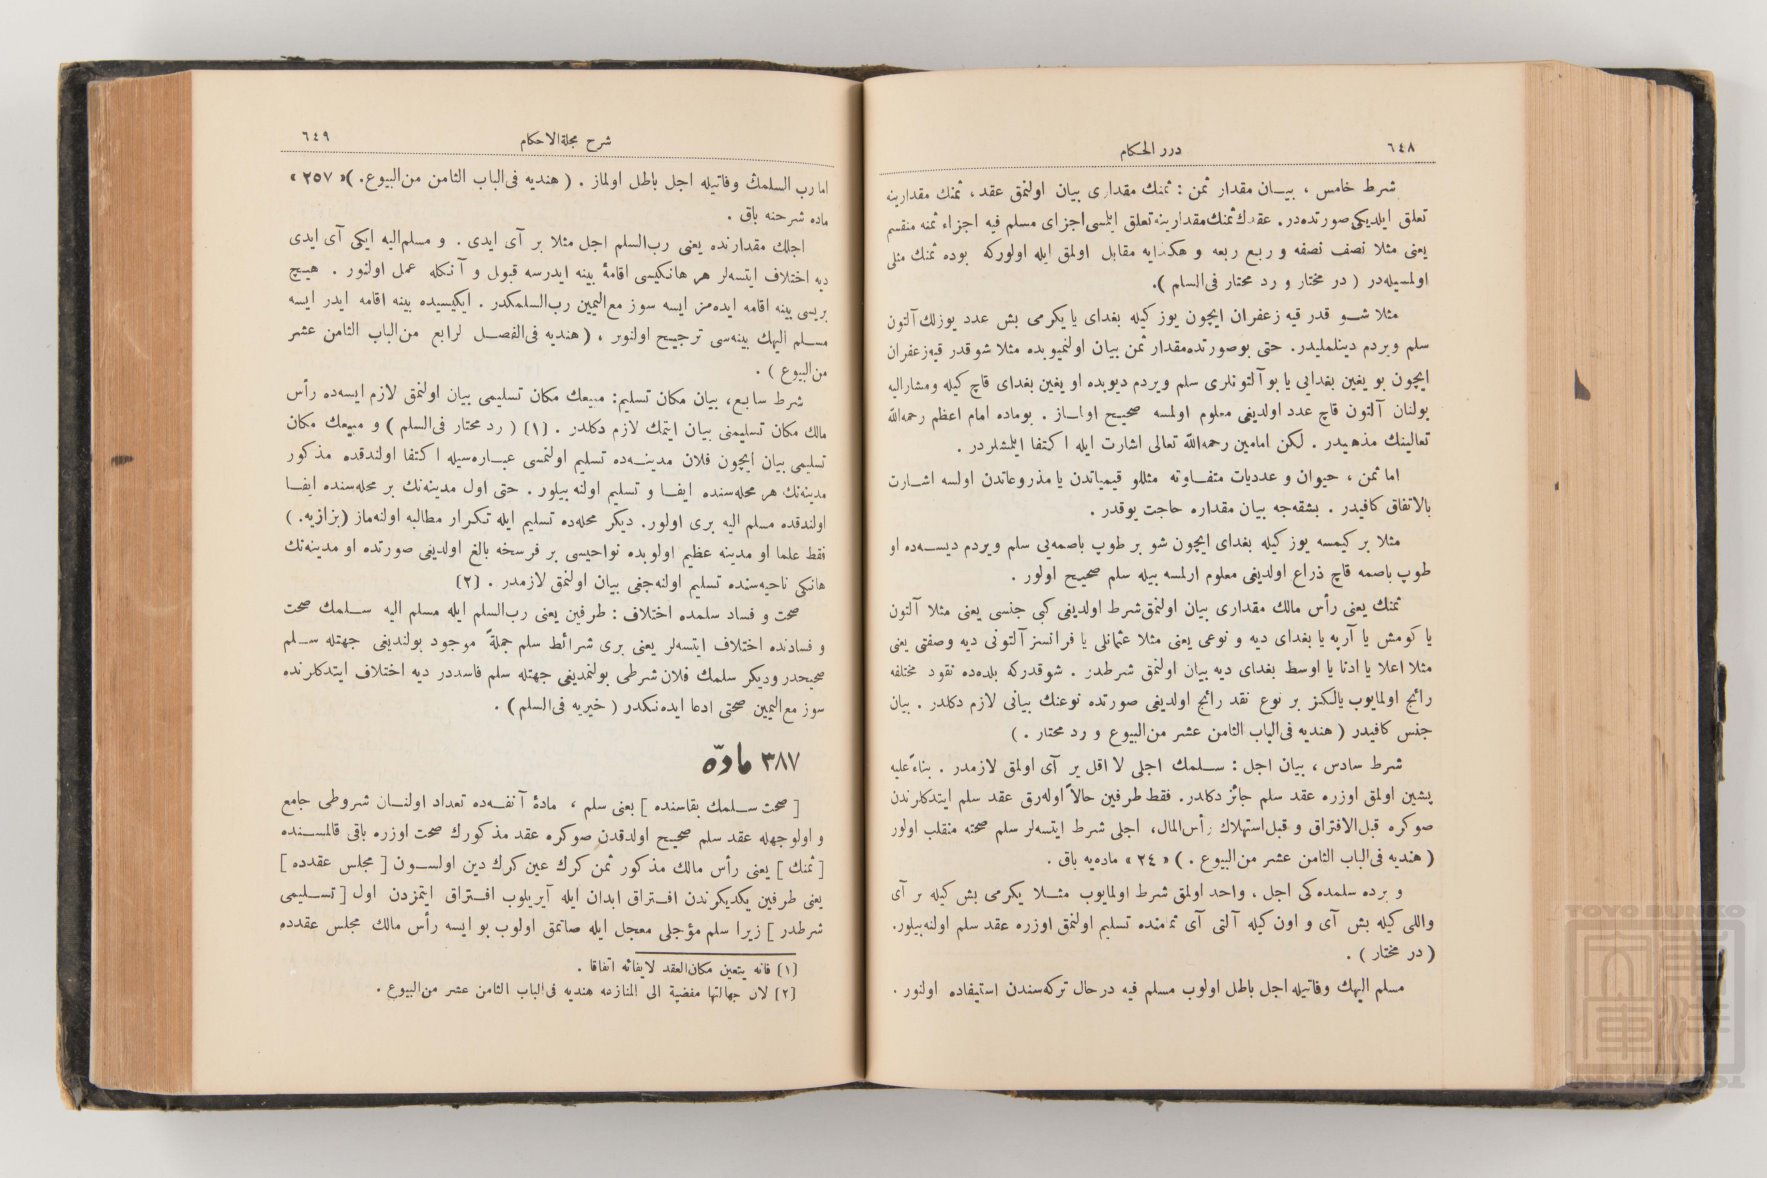 ٦٤٨
درر الحكام
شرط خامس ، بيـان مقدار ثمن : ثمنك مقدارى بيان اولنمق عقد ، ثمنك مقدارينه
تعلق ايلديكى صورتده در . عقدك ثمنك مقدارينه تعلق ايلمسى اجزاى مسلم فيه اجزاء ثمنه منقسم
يعنى مثلا نصف نصفه و ربع ربعه و هكذايه مقابل اولمق ايله اولوركه بوده ثمنك مثلى
اولمسيله در ( در مختار و رد محتار فى السلم ) .
مثلا شـو قدر قيه زعفران ايچون يوز كيله بغداى يا يكرمى بش عدد يوزلك آلتون
سلم ويردم دينلمليدر . حتى بو صورتده مقدار ثمن بيان اولنميوبده مثلا شو قدر قيه زعفران
ايچون بو يغين بغدايى يا بو آلتونلرى سلم ويردم ديوبده او يغين بغداى قاچ كيله و مشاراليه
بولنان آلتون قاچ عدد اولديغى معلوم اولمسه صحيح اولمـاز . بوماده امام اعظم رحمه الله
تعالينك مذهبيدر . لكن امامين رحمه الله تعالى اشارت ايله اكتفا ايلمشلردر .
اما ثمن ، حيوان و عدديات متفـاوته مثللو قيمياتدن يا مذروعاتدن اولسه اشـارت
بالاتفاق كافيدر . بشقه جه بيان مقداره حاجت يوقدر .
مثلا بر كيمسه يوز كيله بغداى ايچون شو بر طوپ باصمه يى سلم ويردم ديســه ده او
طوپ باصمه قاچ ذراع اولديغى معلوم اولمسه بيله سلم صحيح اولور .
ثمنك يعنى رأس مالك مقدارى بيان اولنمق شرط اولديغى كبى جنسى يعنى مثلا آلتون
يا كومش يا آرپه يا بغداى ديه و نوعى يعنى مثلا عثمانلى يا فرانسز آلتونى ديه وصفتى يعنى
مثلا اعلا يا ادنا يا اوسط بغداى ديه بيان اولنمق شرطدر . شو قدركه بلده ده نقود مختلفه
رائج اولمايوب يالكز بر نوع نقد رائج اولديغى صورتده نوعنك بيانى لازم دكلدر . بيان
جنس كافيدر ( هنديه فى الباب الثامن عشر من البيوع و رد محتار . )
شرط سادس ، بيان اجل : ســلمك اجلى لا اقل بر آى اولمق لازمدر . بناءً عليه
پشين اولمق اوزره عقد سلم جائز دكلدر . فقط طرفين حالاً اوله رق عقد سلم ايتدكلرندن
صوكره قبل الافتراق و قبل استهلاك رأس المال ، اجلى شرط ايتسه لر سلم صحته منقلب اولور
( هنديه فى الباب الثامن عشر من البيوع . ) « ٢٤ » ماده يه باق .
و برده سلمده كى اجل ، واحد اولمق شرط اولمايوب مثـلا يكرمى بش كيله بر آى
واللى كيله بش آى و اون كيله آلتى آى تمامنده تسليم اولنمق اوزره عقد سلم اولنه بيلور .
( در مختار ) .
مسلم اليهك وفاتيله اجل باطل اولوب مسلم فيه درحال تركه سندن استيفاده اولنور .
شرح مجلة الاحكام
٦٤٩
اما رب السلمك وفاتيله اجل باطل اولماز . ( هنديه فى الباب الثامن من البيوع . ) « ٢٥٧ »
ماده شرحنه باق .
اجلك مقدارنده يعنى رب السلم اجل مثلا بر آى ايدى . و مسلم اليه ايكى آى ايدى
ديه اختلاف ايتسه لر هر هانكيسى اقامهٔ بينه ايدرسه قبول و آنكله عمل اولنور . هيـچ
بريسى بينه اقامه ايده مز ايسه سوز مع اليمين رب السلمكدر . ايكيسيده بينه اقامه ايدر ايسه
مســلم اليهك بينه سى ترجيـح اولنور ، ( هنديه فى الفصــل لرابع من الباب الثامن عشر
من البيوع ) .
شرط سابع ، بيان مكان تسليم : مبيعك مكان تسليمى بيان اولنمق لازم ايسه ده رأس
مالك مكان تسليمنى بيان ايتمك لازم دكلدر . [١] ( رد محتار فى السلم ) و مبيعك مكان
تسليمى بيان ايچون فلان مدينــه ده تسليم اولنمسى عبــاره سيله اكتفا اولندقده مذكور
مدينه نك هر محله سنده ايفـا و تسليم اولنه بيلور . حتى اول مدينه نك بر محله سنده ايفــا
اولندقده مسلم اليه برى اولور . ديكر محله ده تسليم ايله تكـرار مطالبه اولنه ماز ( بزازيه . )
فقط علما او مدينه عظيم اولوبده نواحيسى بر فرسخه بالغ اولديغى صورتده او مدينه نك
هانكى ناحيه سنده تسليم اولنه جغى بيان اولنمق لازمدر . [٢]
صحت و فساد سلمده اختلاف : طرفين يعنى رب السلم ايله مسلم اليه ســلمك صحت
و فسادنده اختلاف ايتسه لر يعنى برى شرائط سلم جملةً موجود بولنديغى جهتله ســلم
صحيحدر و ديكر سلمك فلان شرطى بولنمديغى جهتله سلم فاسددر ديه اختلاف ايتدكلرنده
سوز مع اليمين صحتى ادعا ايده نكدر ( خيريه فى السلم ) .
٣٨٧ مادّه
[ صحت ســلمك بقاسنده ] يعنى سلم ، مادهٔ آنفــه ده تعداد اولنــان شروطى جامع
و اولوجهله عقد سلم صحيـح اولدقدن صوكره عقد مذكورك صحت اوزره باقى قالمســنده
[ ثمنك ] يعنى رأس مالك مذكور ثمن كرك عين كرك دين اولســون [ مجلس عقدده ]
يعنى طرفين يكديكرندن افــتراق ابدان ايله آيريلوب افــتراق ايتمزدن اول [ تســليمى
شرطدر ] زيرا سلم مؤجلى معجل ايله صاتمق اولوب بو ايسه رأس مالك مجلس عقدده
[١] فانه يتعين مكان العقد لايفائه اتفاقا .
[٢] لان جهالتها مفضية الى المنازعه هنديه فى الباب الثامن عشر من البيوع .
TOYO BUNKO